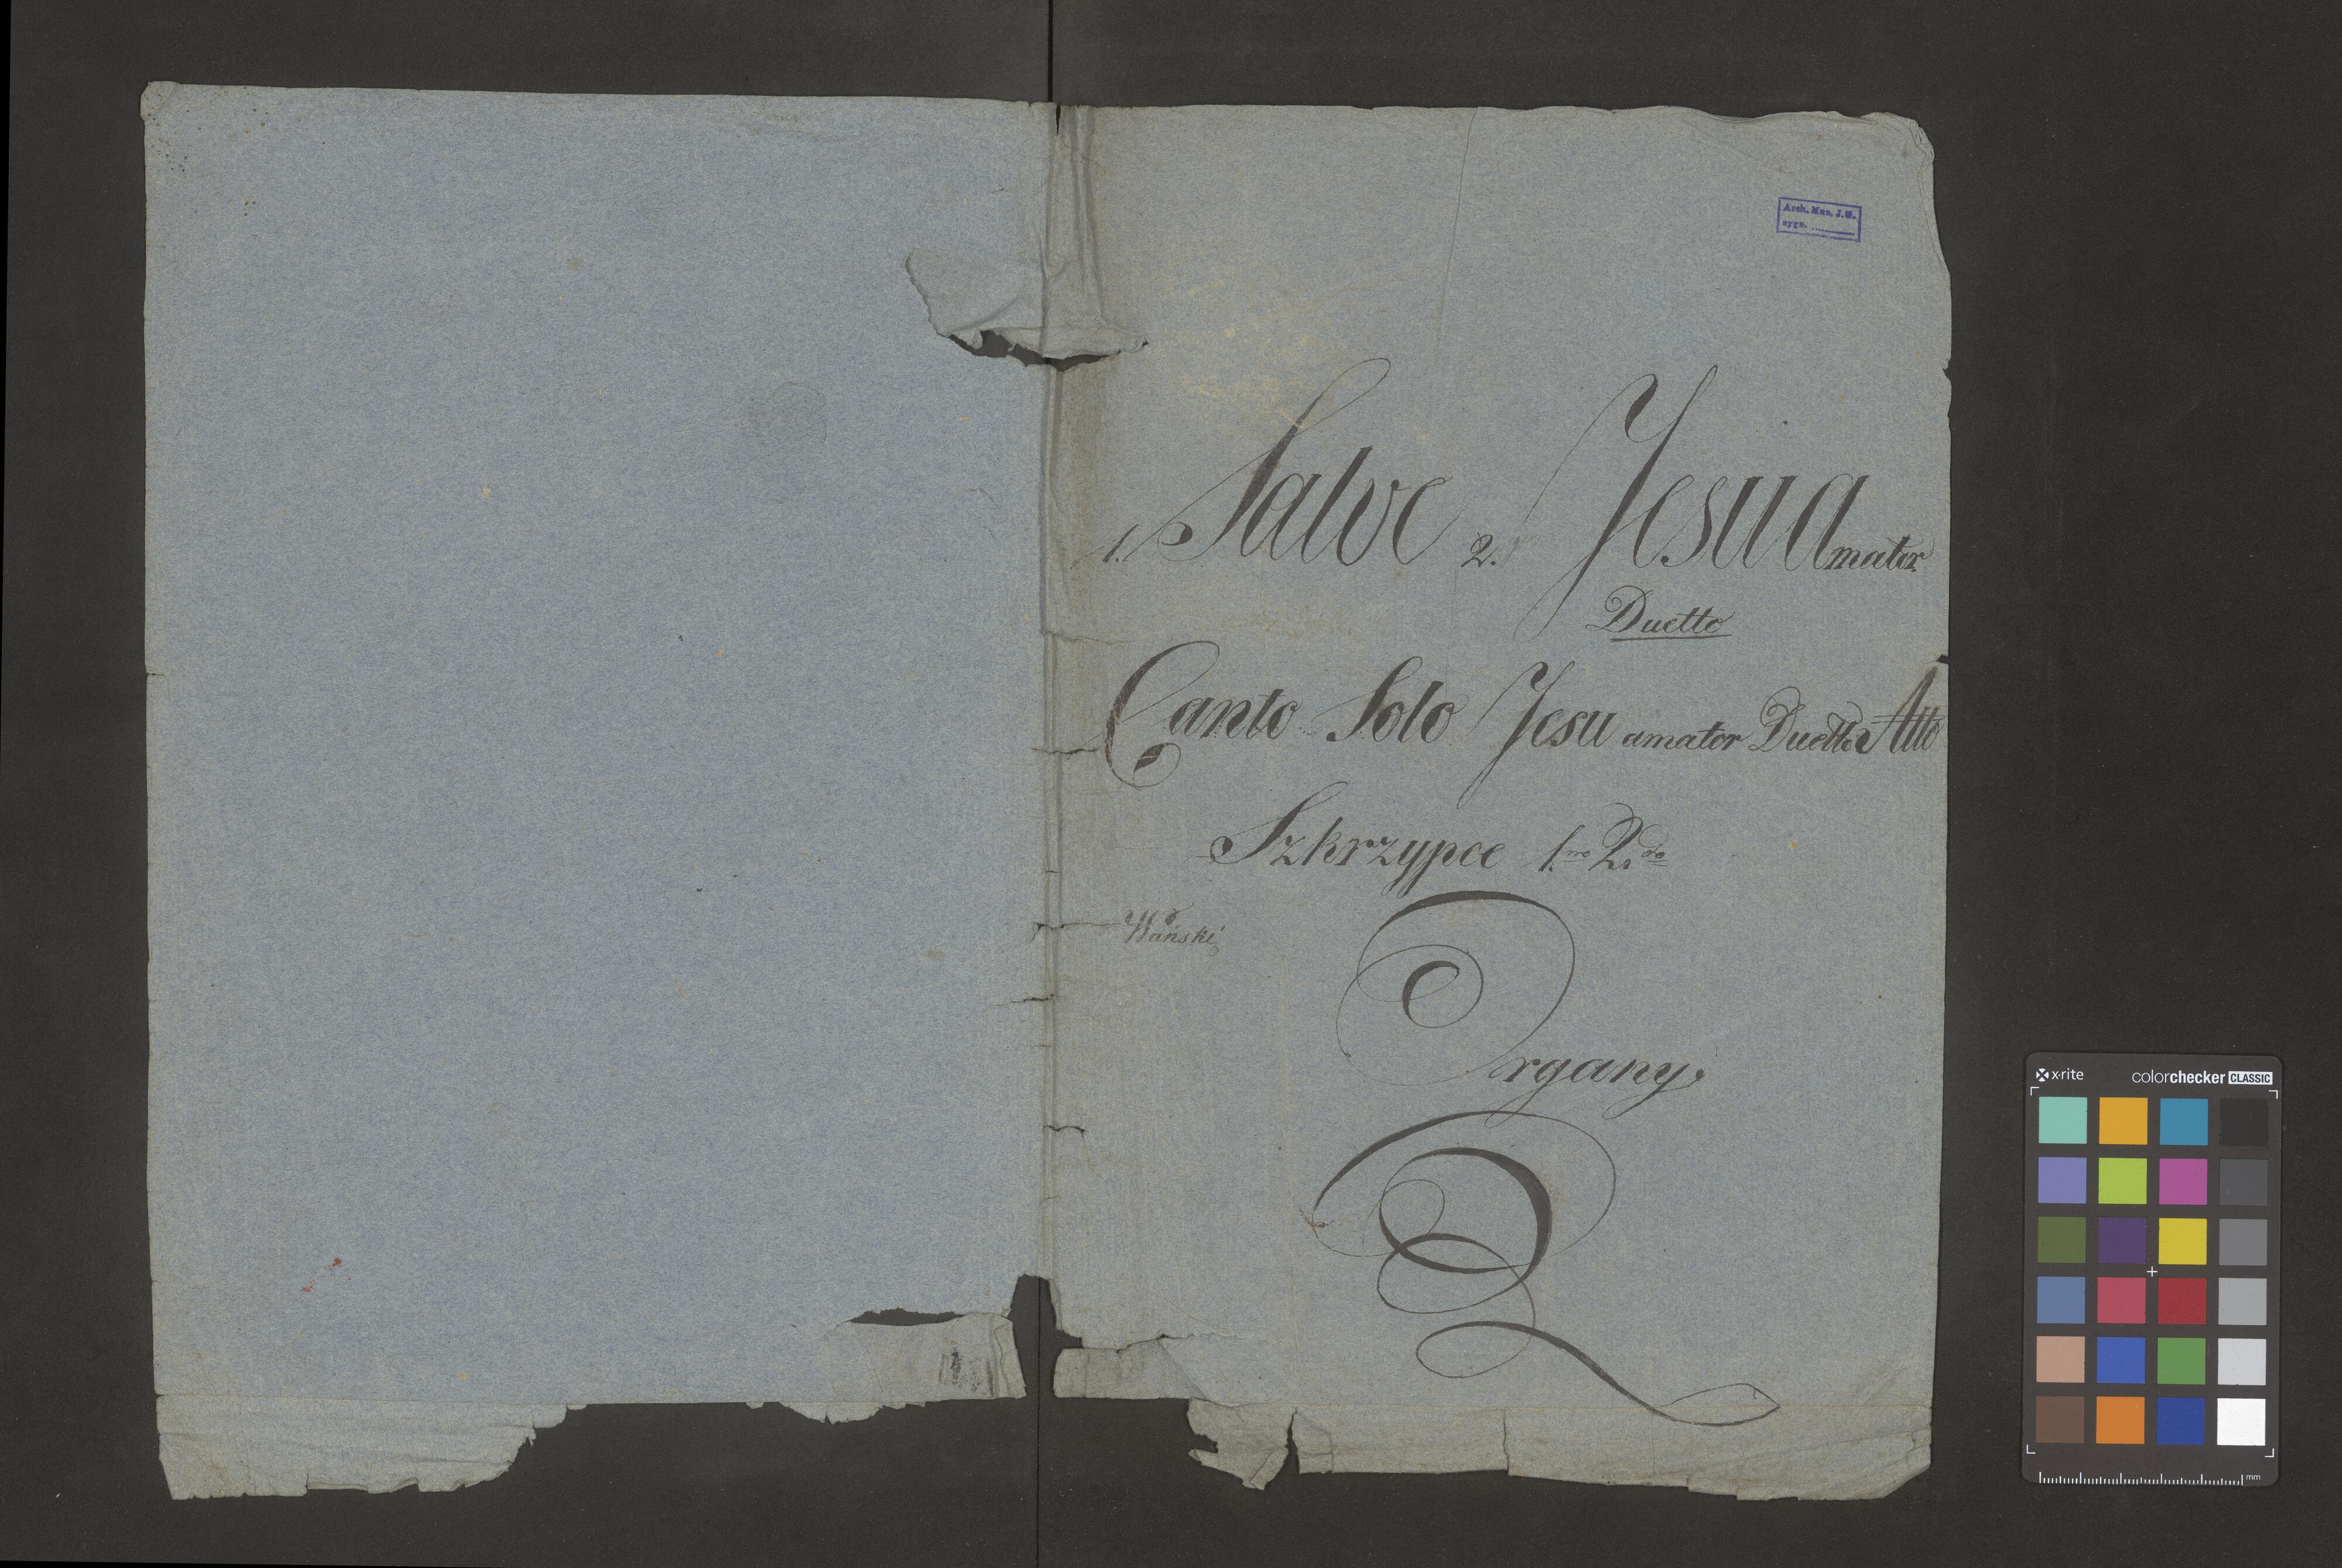 Arch. Mus. J. G.
sygn.
1. Salve 2. Jesu amator
Duetto
Canto Solo Jesu amator Duetto Alto
Szkrzypce 1.mo 2.do
Wański
Organy
x-rite colorchecker CLASSIC
mm